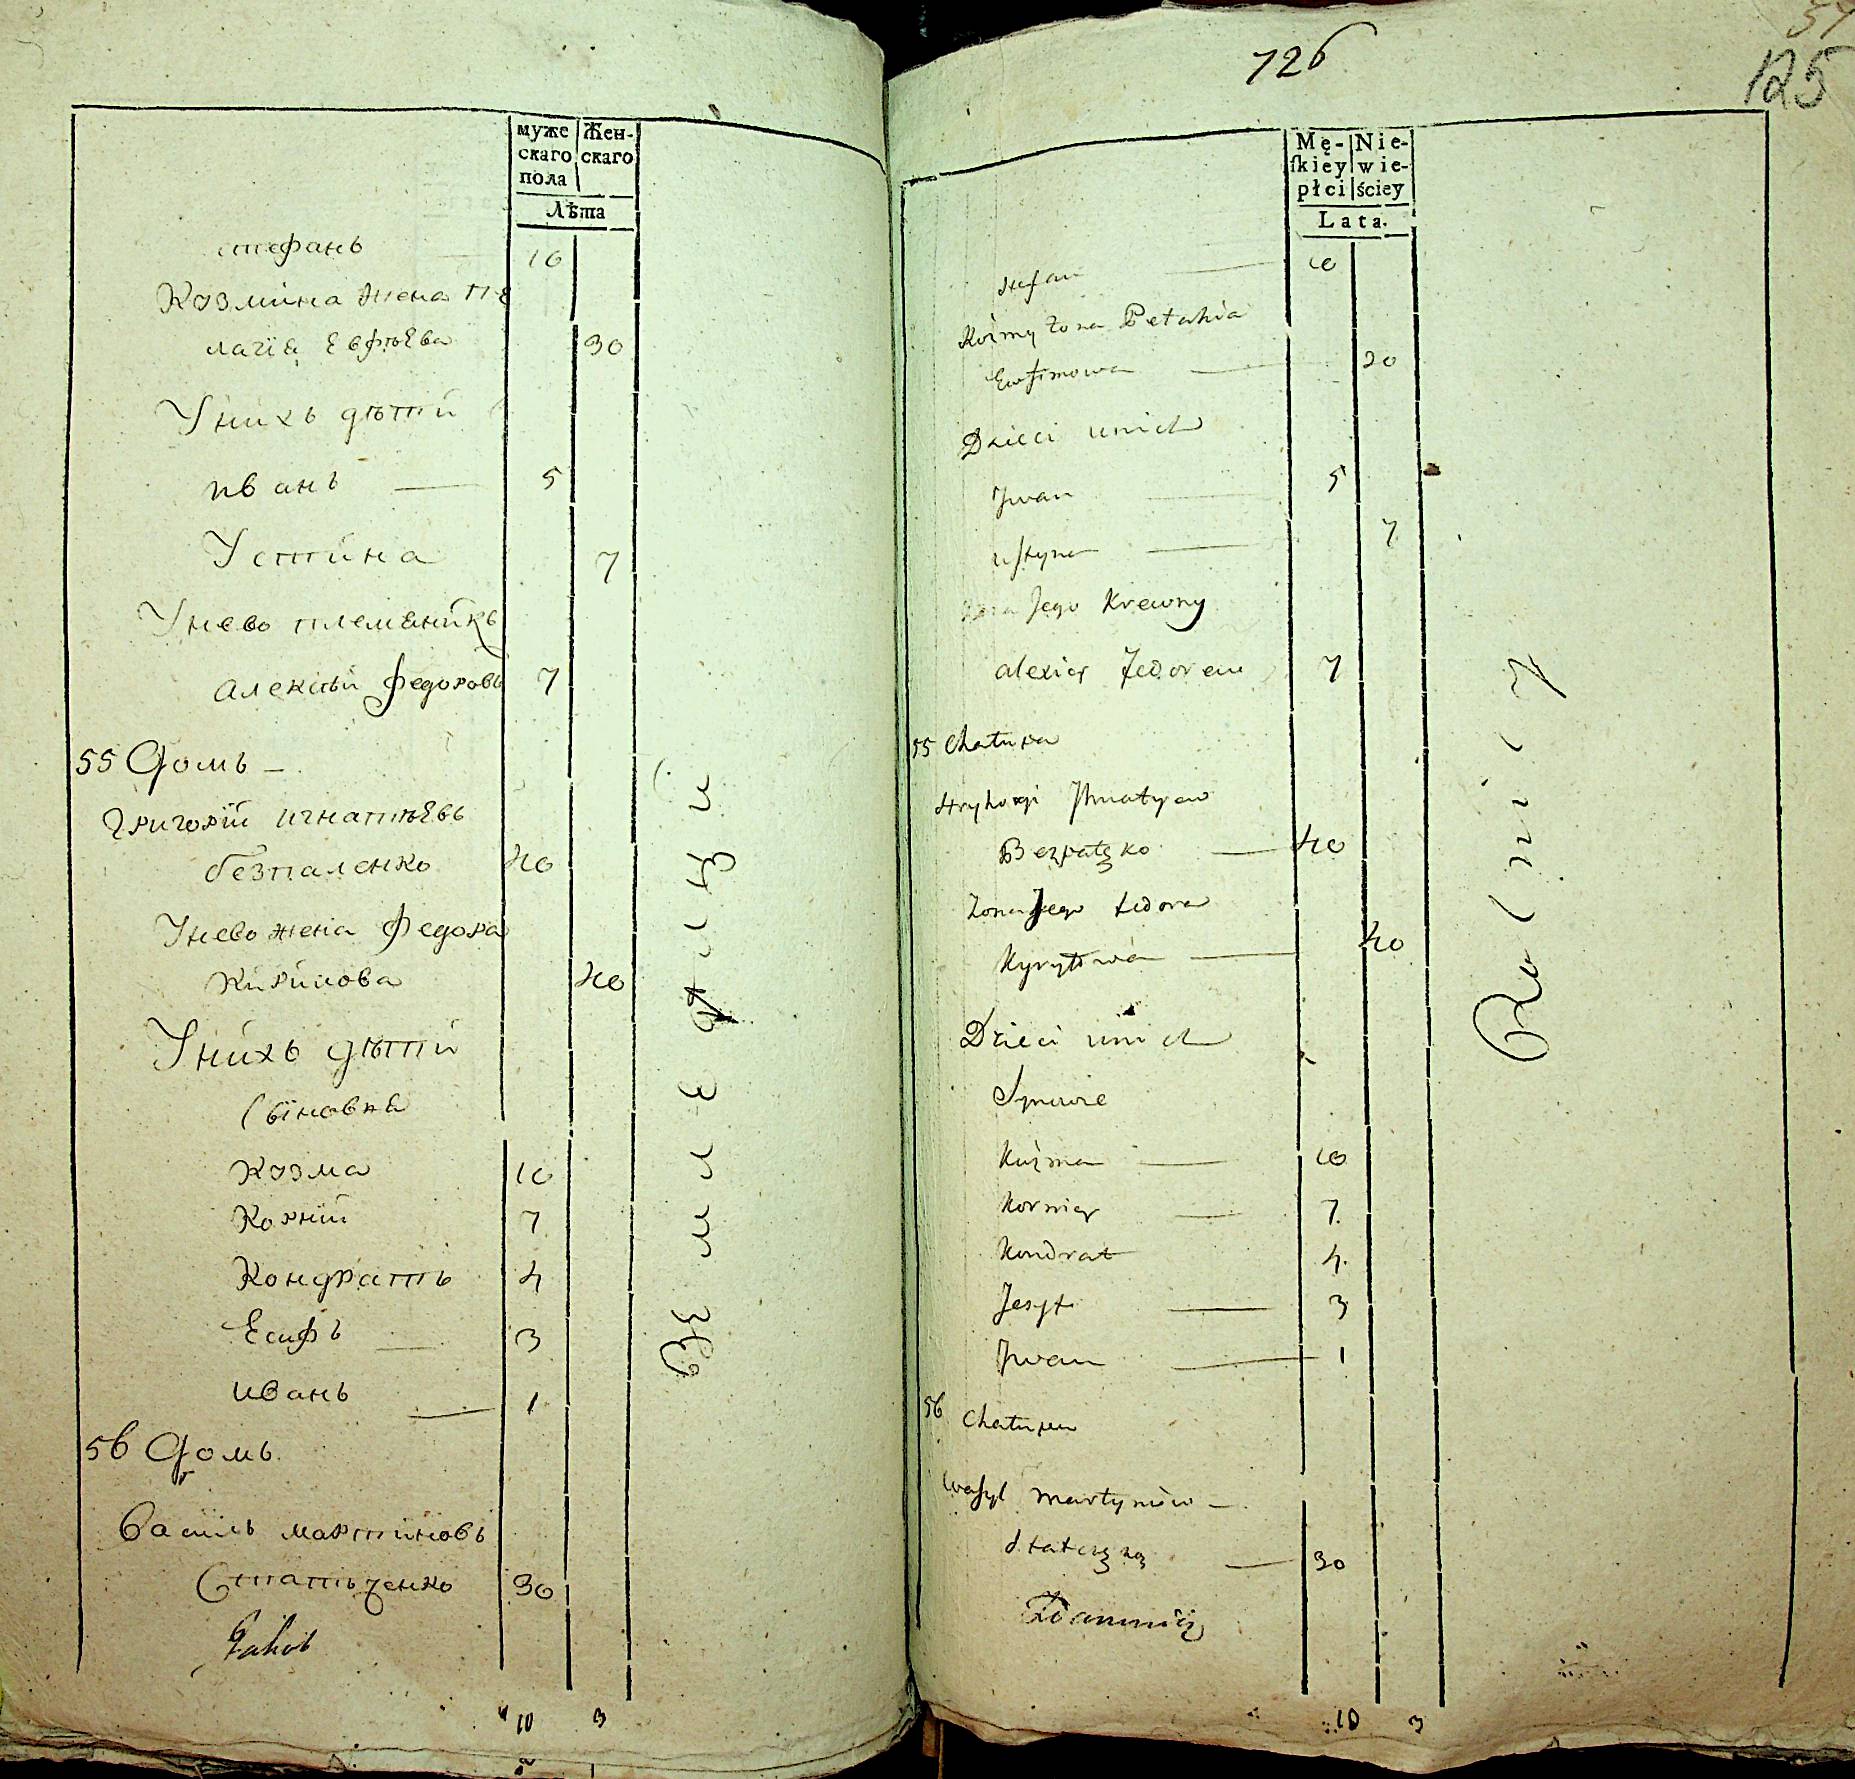 муже
скаго
пола
Жен-
скаго
Лѣта
стефанъ 10
Козмина жена пе
лагіа Евфѣева 30
Унихъ дѣтй
иванъ 5
Устина 7
Унево племеникъ
Алексѣй федоровъ 7
55 домъ
Григорїй игнатѣевъ
безпаленко 40
Унево жена федора
Кирилова 40
Унихъ дѣтй
Сыновья
Козма 10
Корнїй 7
Кондратъ 4
Есифъ 3
иванъ 1
56 домъ
Василь мартиновъ
Статченко 30
10 3
земледелци
126
125
Mę-
ſkiey
płci
Nie-
wie-
ściey
Lata.
stefan 10
Kozmy żona Pelahia
Ewfimowa 30
Dzieci unich
Jwan 5
ustyna 7
Jego Krewny
alexiey fedorow 7
55 Chatupa
Hryhory Jhnatyew
40
Zona Jego fedora
Kyryłowa 40
Dzieci unich
Synowie
Kuzma 10
Korniey 7
Kondrat 4
Jesyf 3
Jwan 1
56 Chatupa
wasyl martynów
30
10 3
Rolnicy